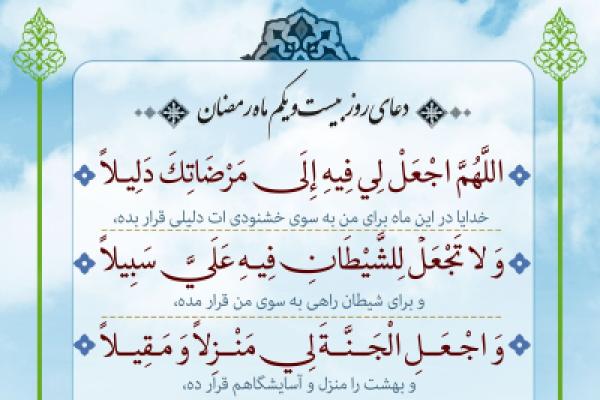 دعای روز بیست و یکم ماه رمضان
اللَّهُمَّ اجْعَلْ لِي فِيهِ إِلَى مَرْضَاتِكَ دَلِيلاً
خدایا در این ماه برای من به سوی خشنودی ات دلیلی قرار بده،
وَ لا تَجْعَلْ لِلشَّيْطَانِ فِيهِ عَلَيَّ سَبِيلاً
و برای شیطان راهی به سوی من قرار مده،
وَ اجْعَلِ الْجَنَّةَ لِي مَنْزِلاً وَ مَقِيلاً
و بهشت را منزل و آسایشگاهم قرار ده،